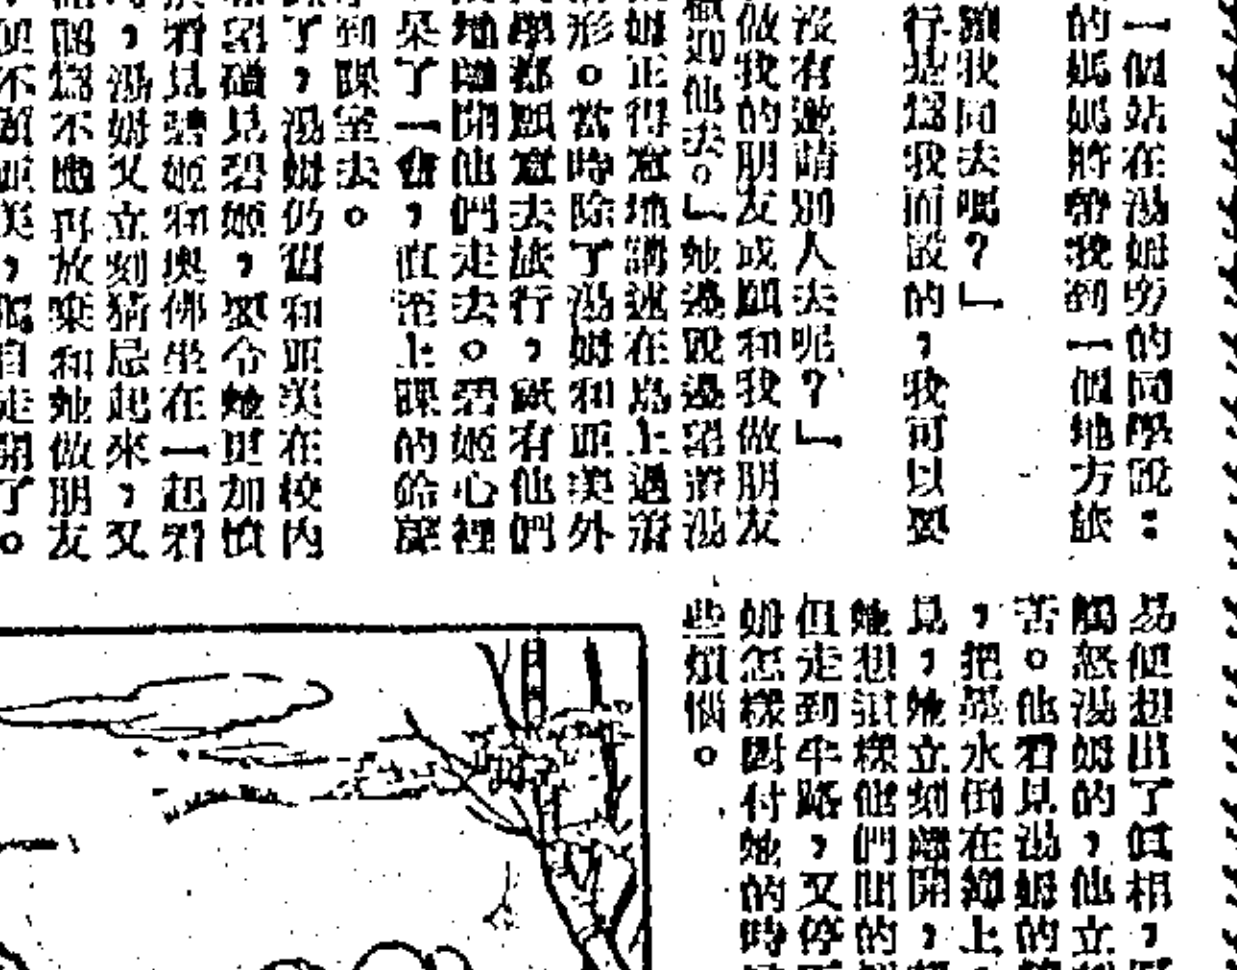 一個站在湯姆旁的同學說：
的媽媽將帶我到一個地方旅
我同去嗎？」
行是為我而設的，我可以要
沒有邀請別人去呢？」
做我的朋友或願和我做朋友
他去。」她邊說邊望着湯
姆正得意地講述在島上過着
形。當時除了湯姆和亞美外
學都願意去旅行，祇有他們
地離開他們走去。碧姬心裡
呆了一會，直至上課的鈴聲
到課室去。
了，湯姆仍舊和亞美在校內
望碰見碧姬，要令她更加憤
看見碧姬和奧佛坐在一起看
，湯姆又立刻猜忌起來，又
為不應再放棄和她做朋友
不顧亞美，獨自走開了。
易便想出了真相，
觸怒湯姆的，他立
苦。他看見湯姆的
，把墨水倒在簿上
見，她立刻離開，
她想 他們間的
但走到半路，又停
姆怎樣對付她的時
些煩惱。